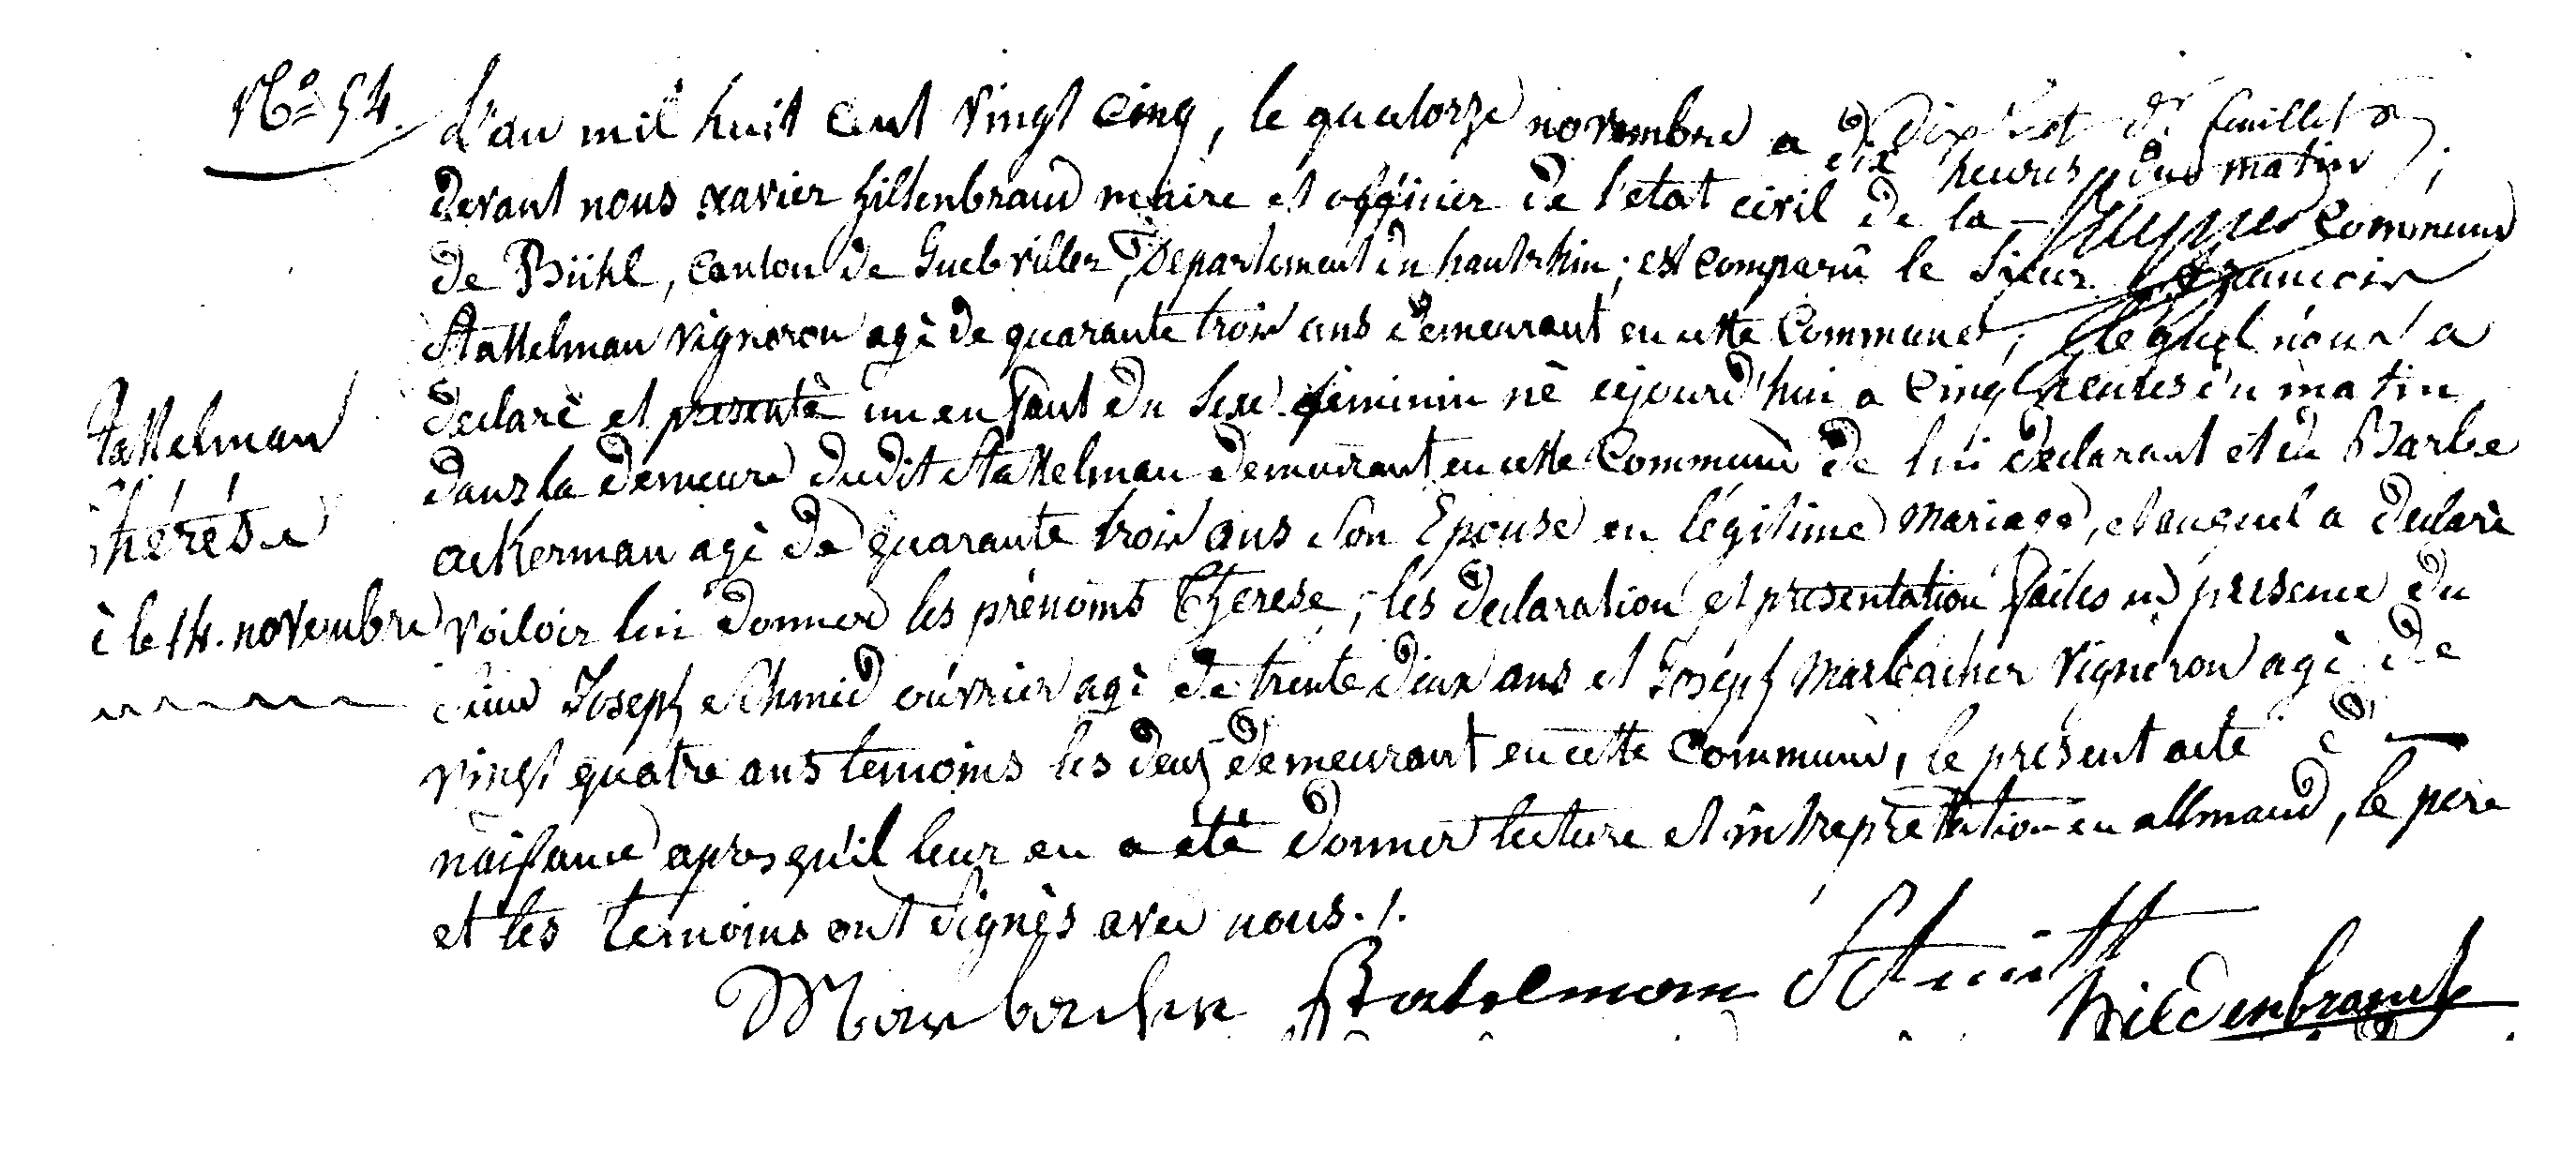 N.° 54.
L'an mil huit cent vingt cinq, le quatorze novembre a dix heures du matin;
dix huit feuillet
devant nous xavier hiltenbrand maire et officier de l'état civil de la commune
de Bühl, canton de Guebviller, Departement du hautrhin; est comparû le Sieur françois
Stattelman vigneron agè de quarante trois ans demeurant en cette Commune, lequel nous a
declarè et presentè un enfant du sexe féminin nè cejourd'hui a cinq heures du matin
dans la demeure dudit Stattelman demeurant en cette Commune de lui declarant et de Barbe
ackerman agè de quarante trois ans son Epouse en légitime mariage, et auquel a declarè
voiloir lui donner les prénoms Therese, les declaration et presentation faites en presence du
Sieur Joseph Schmid ouvrier agè de trente deux ans et Joseph Marbacher vigneron agè de
vingt quatre ans temoins les deux demeurant en cette Commune, le présent acte de
naissance apres qu'il leur en a étè donner lecture et intrepretation en allmand, le pere
et les temoins ont signès avec nous./.
tattelman
thérése
è le 14. novembre
Marbacher Statelman Schmitt
Hildenbrand